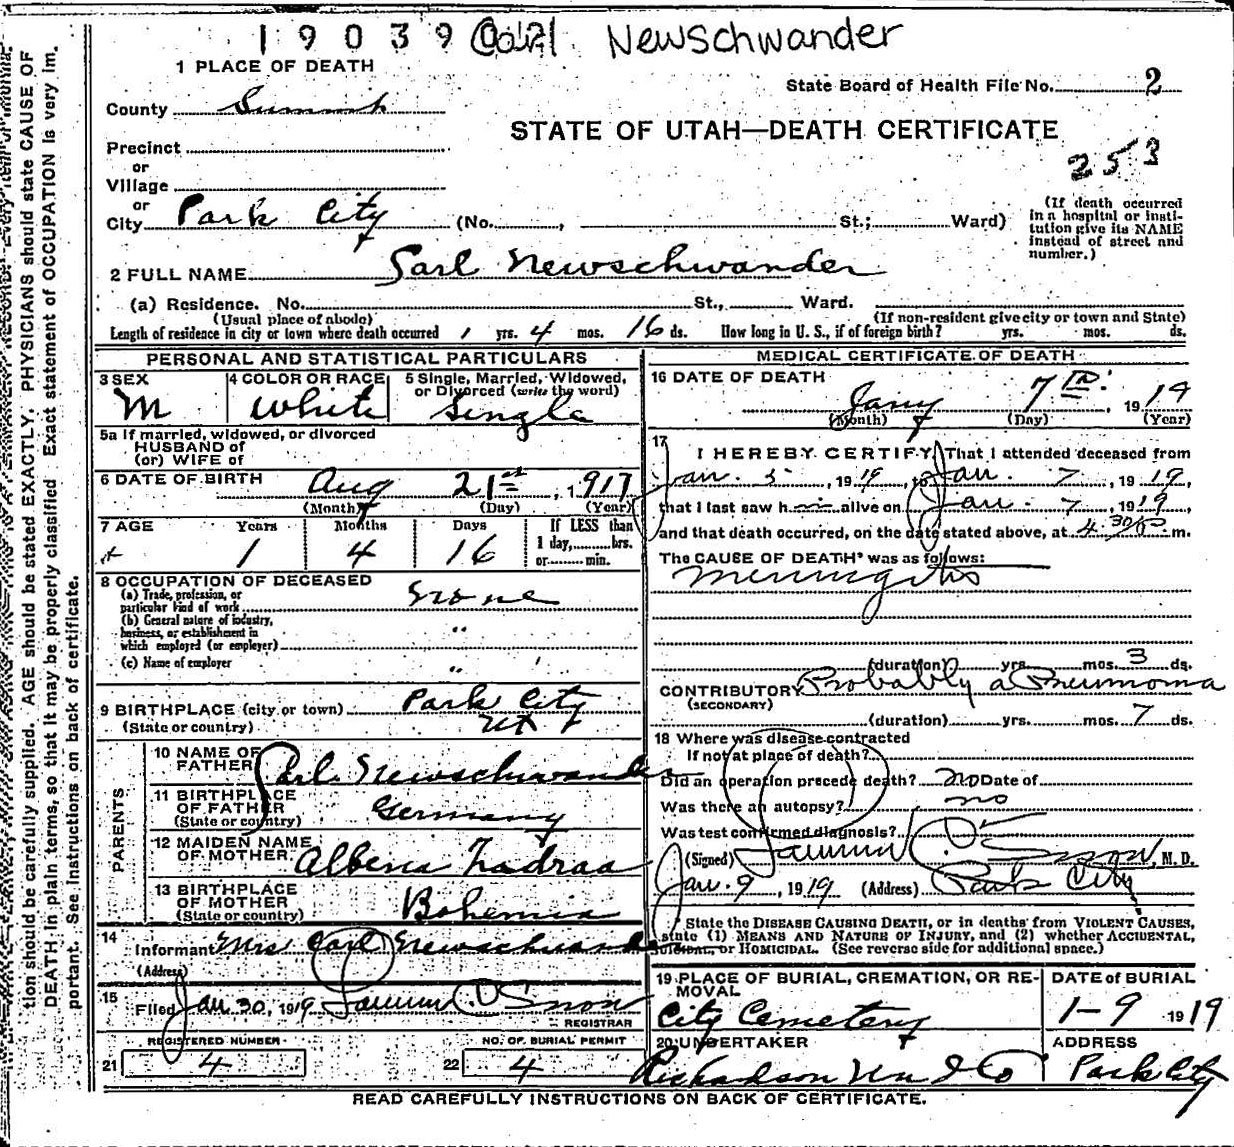 19039 Carl Newschwander
1 PLACE OF DEATH
State Board of Health File No. 2
County Summit
STATE OF UTAH—DEATH CERTIFICATE
253
Precinct
or
Village
or
City Park City (No. , St.; Ward)
(If death occurred in a hospital or institution give its NAME instead of street and number.)
2 FULL NAME Carl Newschwander
(a) Residence. No. St., Ward.
(Usual place of abode) (If non-resident give city or town and State)
Length of residence in city or town where death occurred 1 yrs. 4 mos. 16 ds. How long in U. S., if of foreign birth? yrs. mos. ds.
PERSONAL AND STATISTICAL PARTICULARS
3 SEX 4 COLOR OR RACE 5 Single, Married, Widowed, or Divorced (write the word)
M White Single
5a If married, widowed, or divorced
HUSBAND of
(or) WIFE of
6 DATE OF BIRTH Aug 21st, 1917
(Month) (Day) (Year)
7 AGE Years Months Days If LESS than
1 4 16 1 day, hrs.
or min.
8 OCCUPATION OF DECEASED
(a) Trade, profession, or
particular kind of work None
(b) General nature of industry,
business, or establishment in
which employed (or employer) "
(c) Name of employer "
9 BIRTHPLACE (city or town) Park City
(State or country) Ut
PARENTS
10 NAME OF FATHER Carl Newschwander
11 BIRTHPLACE OF FATHER (State or country) Germany
12 MAIDEN NAME OF MOTHER Albena
13 BIRTHPLACE OF MOTHER (State or country) Bohemia
14 Informant Mrs Carl Newschwander
(Address)
15 Filed Jan 30, 1919 Snow
REGISTRAR
21 REGISTERED NUMBER 4
22 NO. OF BURIAL PERMIT 4
MEDICAL CERTIFICATE OF DEATH
16 DATE OF DEATH
Jany 7th, 1919
(Month) (Day) (Year)
17 I HEREBY CERTIFY, That I attended deceased from
Jan. 5, 1919, to Jan. 7, 1919,
that I last saw h alive on Jan. 7, 1919,
and that death occurred, on the date stated above, at 4 30 m.
The CAUSE OF DEATH* was as follows:
Meningitis
(duration) yrs. mos. 3 ds.
CONTRIBUTORY Probably a Pneumonia
(SECONDARY)
(duration) yrs. mos. 7 ds.
18 Where was disease contracted
If not at place of death?
Did an operation precede death? no Date of
Was there an autopsy? no
Was test confirmed diagnosis?
(Signed) Snow, M. D.
Jan. 9, 1919 (Address) Park City
* State the DISEASE CAUSING DEATH, or in deaths from VIOLENT CAUSES,
state (1) MEANS AND NATURE OF INJURY, and (2) whether ACCIDENTAL,
SUICIDAL, or HOMICIDAL. (See reverse side for additional space.)
19 PLACE OF BURIAL, CREMATION, OR REMOVAL DATE of BURIAL
City Cemetery 1-9 1919
20 UNDERTAKER ADDRESS
Richardson Un & Co Park City
READ CAREFULLY INSTRUCTIONS ON BACK OF CERTIFICATE.
tion should be carefully supplied. AGE should be stated EXACTLY. PHYSICIANS should state CAUSE OF
DEATH in plain terms, so that it may be properly classified. Exact statement of OCCUPATION is very im-
portant. See instructions on back of certificate.